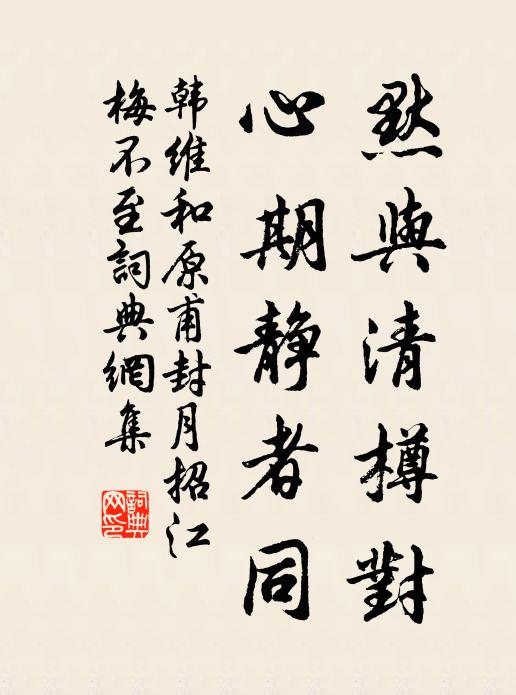 默與清樽對
心期静者同
韩維和原甫封月招江
梅不至詞典網集
詞典
网印